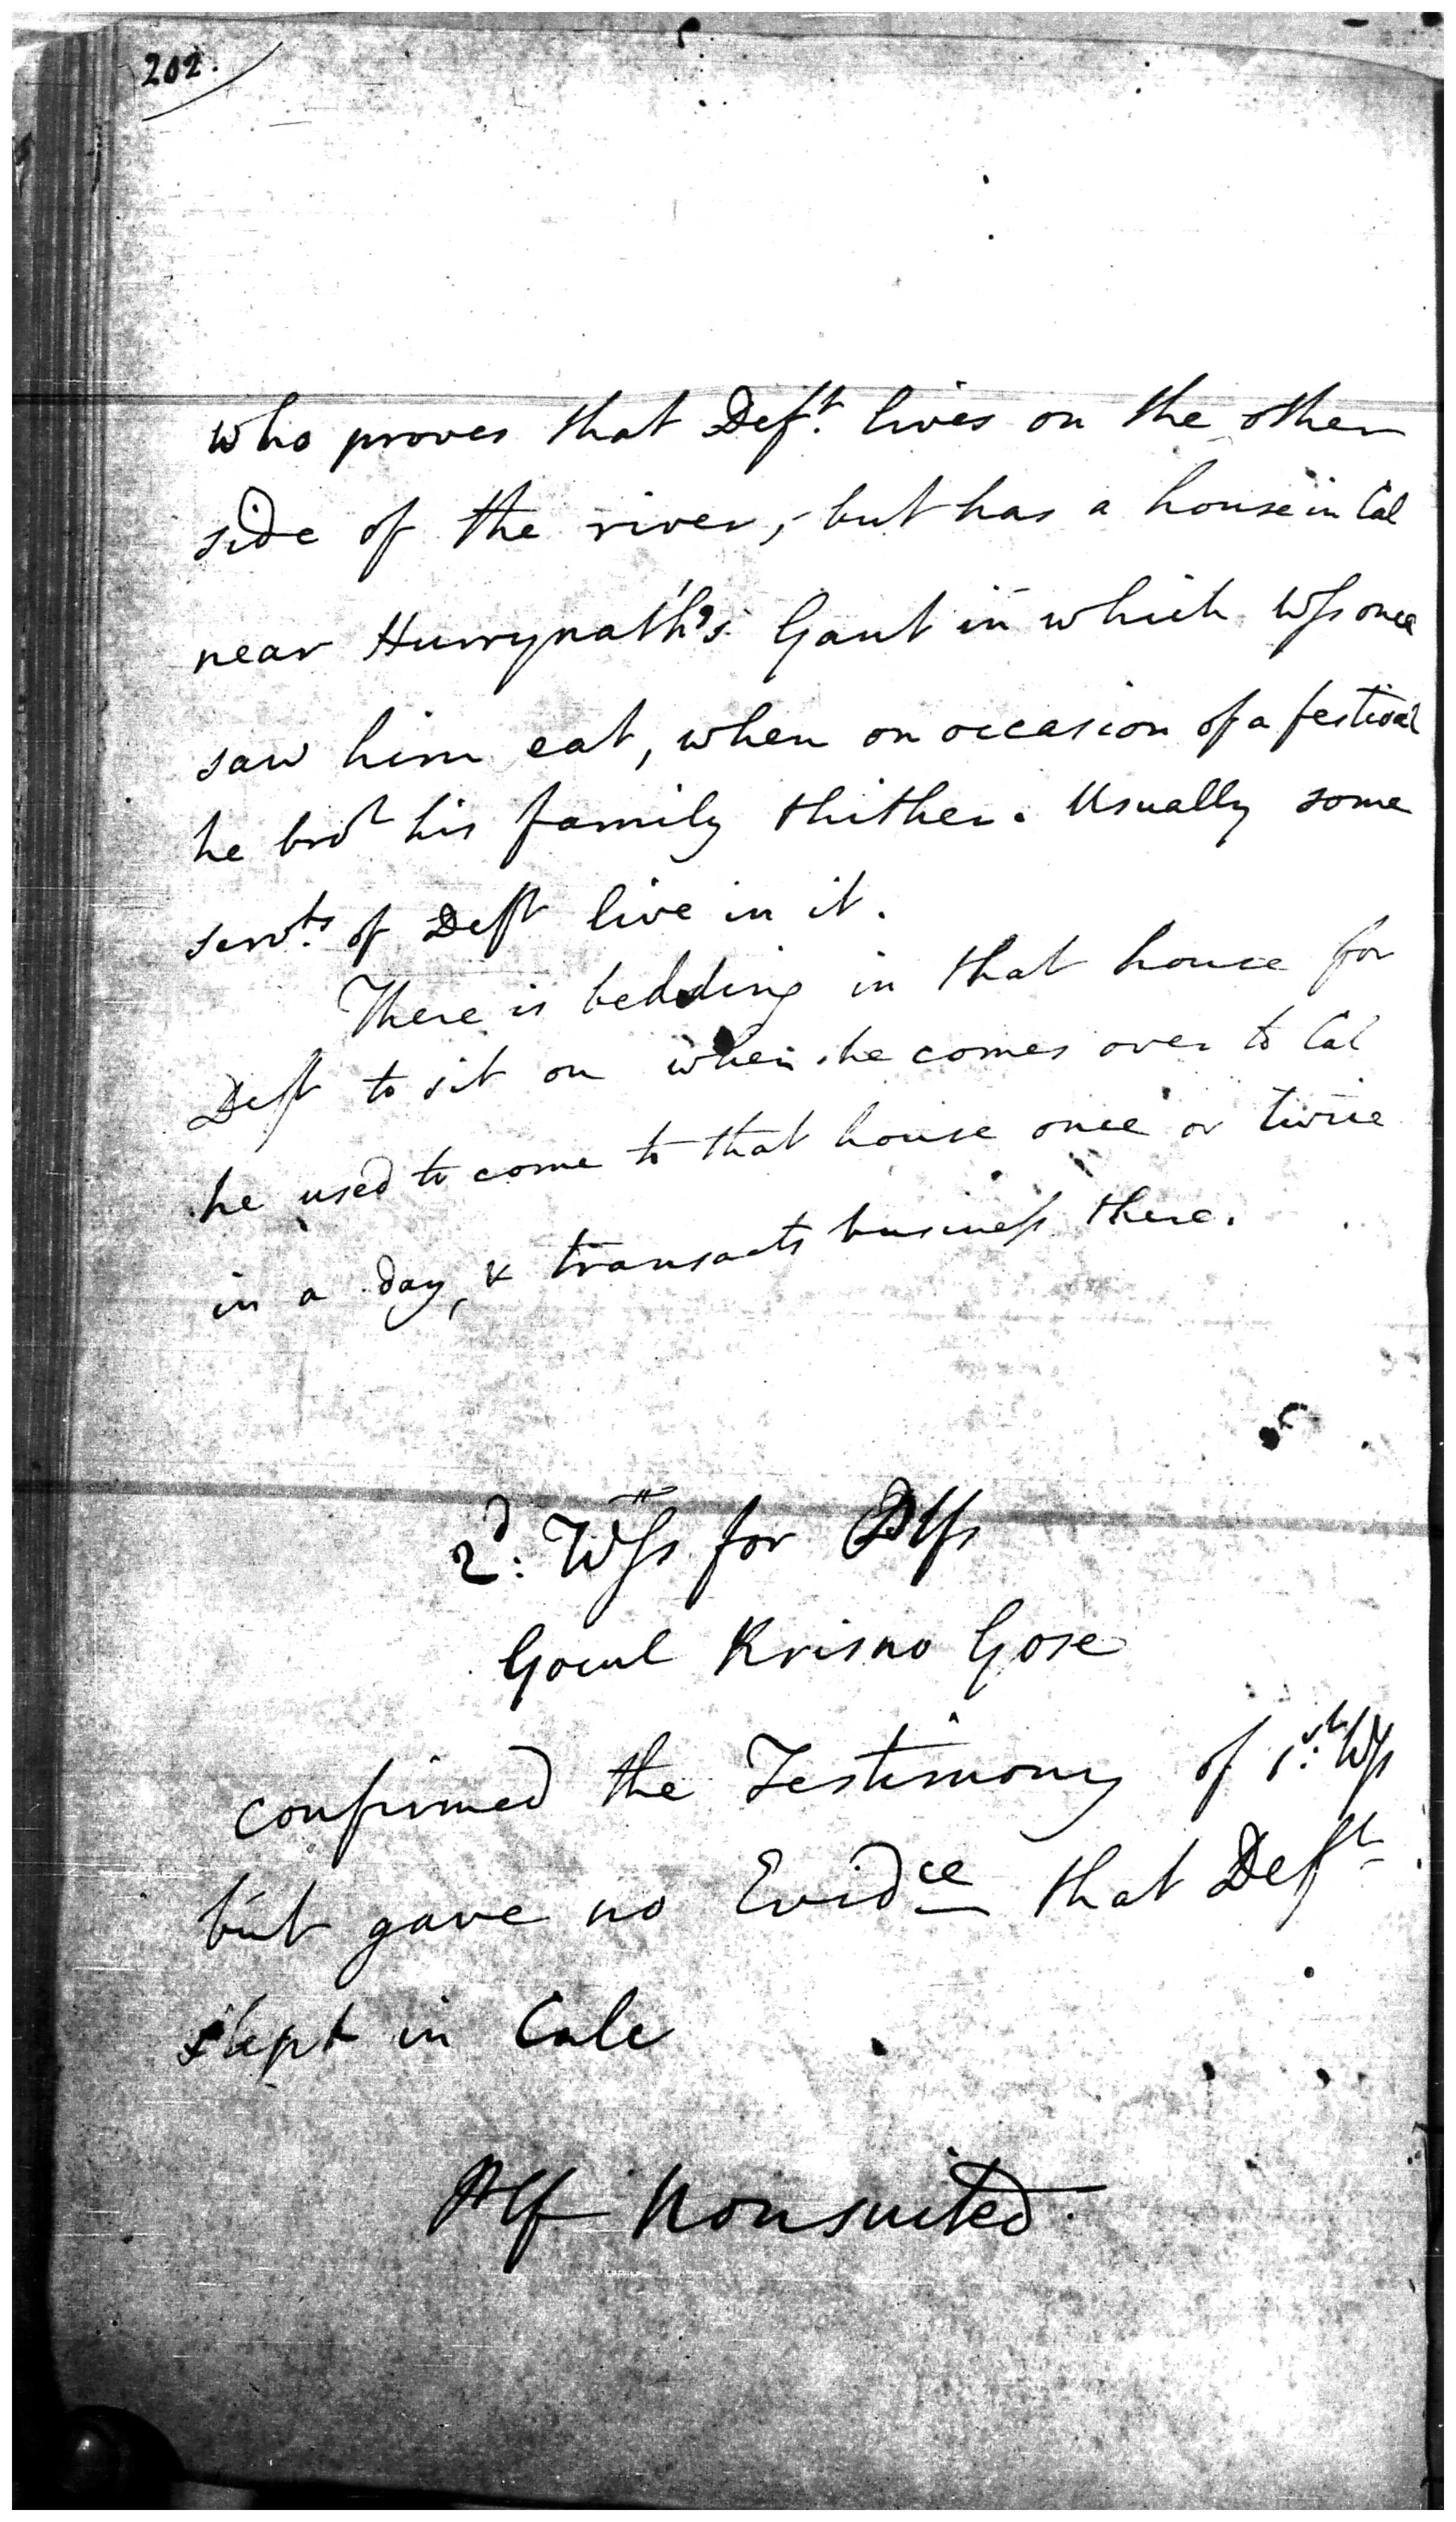 202.
who proves that Deft. lives on the other
side of the river, - but has a house in Cal
near Hurrynath's Gaut in which Wss once
saw him eat, when on occasion of a festival
he brot his family thither. Usually some
servts. of Deft live in it.
There is bedding in that house for
Deft to sit on when he comes over to Cal
he used to come to that house once or twice
in a day, & transacts business there.
2d. Wss for
Gocul Krisno Gose
confirmed the Testimony of 1st. Wss
but gave no Evidce that Deft
slept in Calc
Plf Nonsuited.